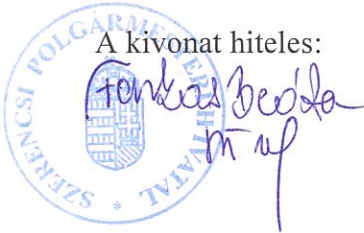 A kivonat hiteles:
SZERENCSI POLGÁRMESTERI HIVATAL *
Farkas Beáta